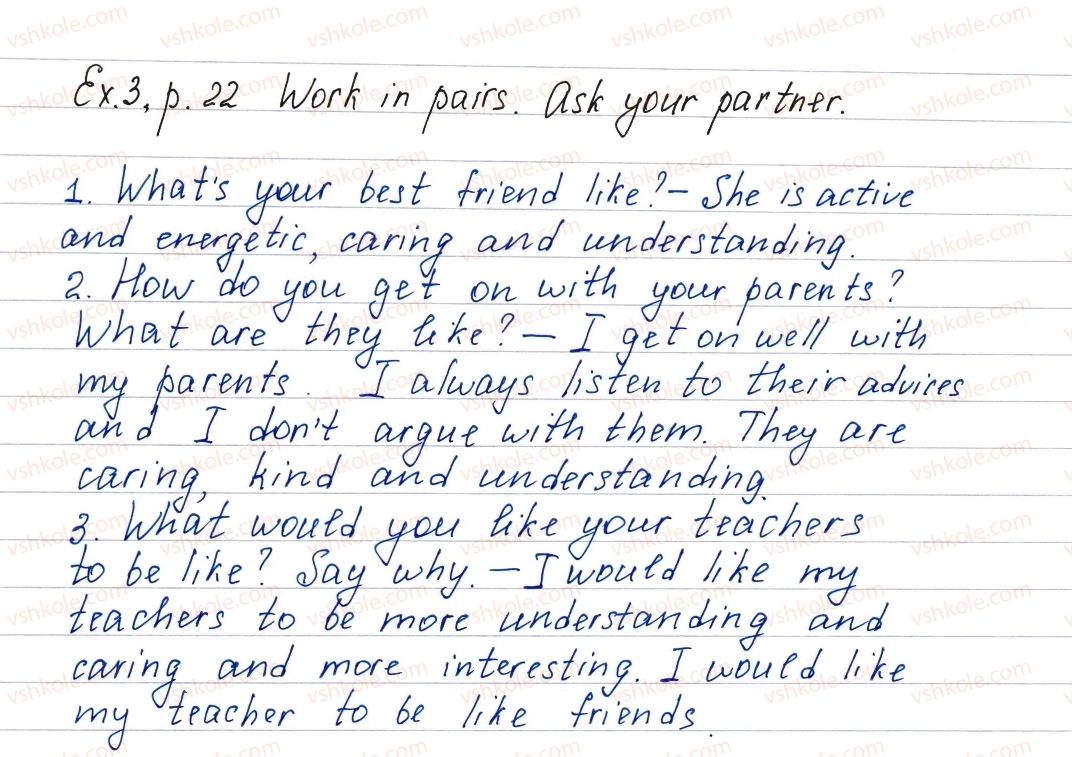 Ex.3, p. 22 Work in pairs. Ask your partner.
1. What's your best friend like? – She is active
and energetic, caring and understanding.
2. How do you get on with your parents?
What are they like? – I get on well with
my parents. I always listen to their advices
and I don't argue with them. They are
caring, kind and understanding.
3. What would you like your teachers
to be like? Say why. – I would like my
teachers to be more understanding and
caring and more interesting. I would like
my teacher to be like friends.
vshkole.com